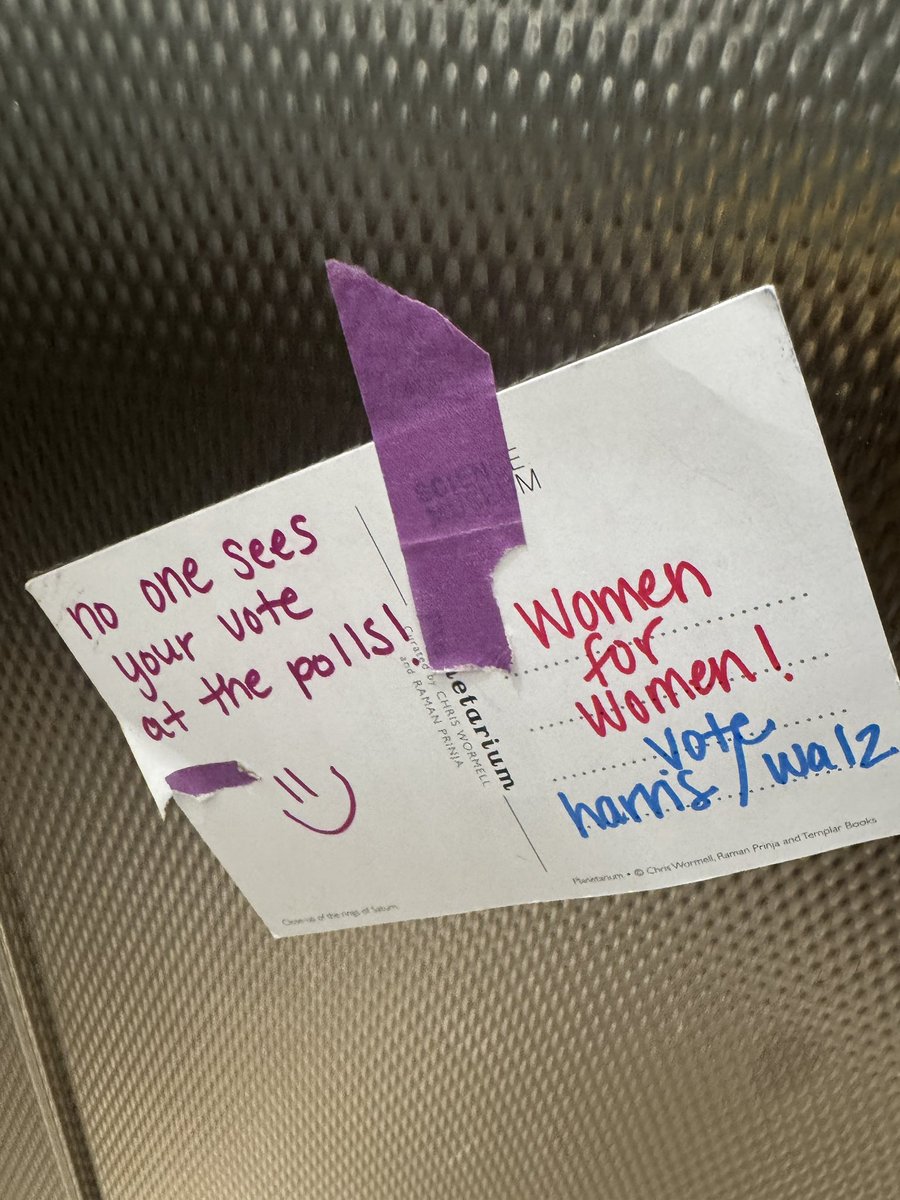 no one sees
your vote
at the polls!
Women
for
women!
vote
harris/walz
SCIEN
M
etarium
Curated by CHRIS WORMELL
and RAMAN PRINJA
Close-up of the rings of Saturn
Planetarium • © Chris Wormell, Raman Prinja and Templar Books